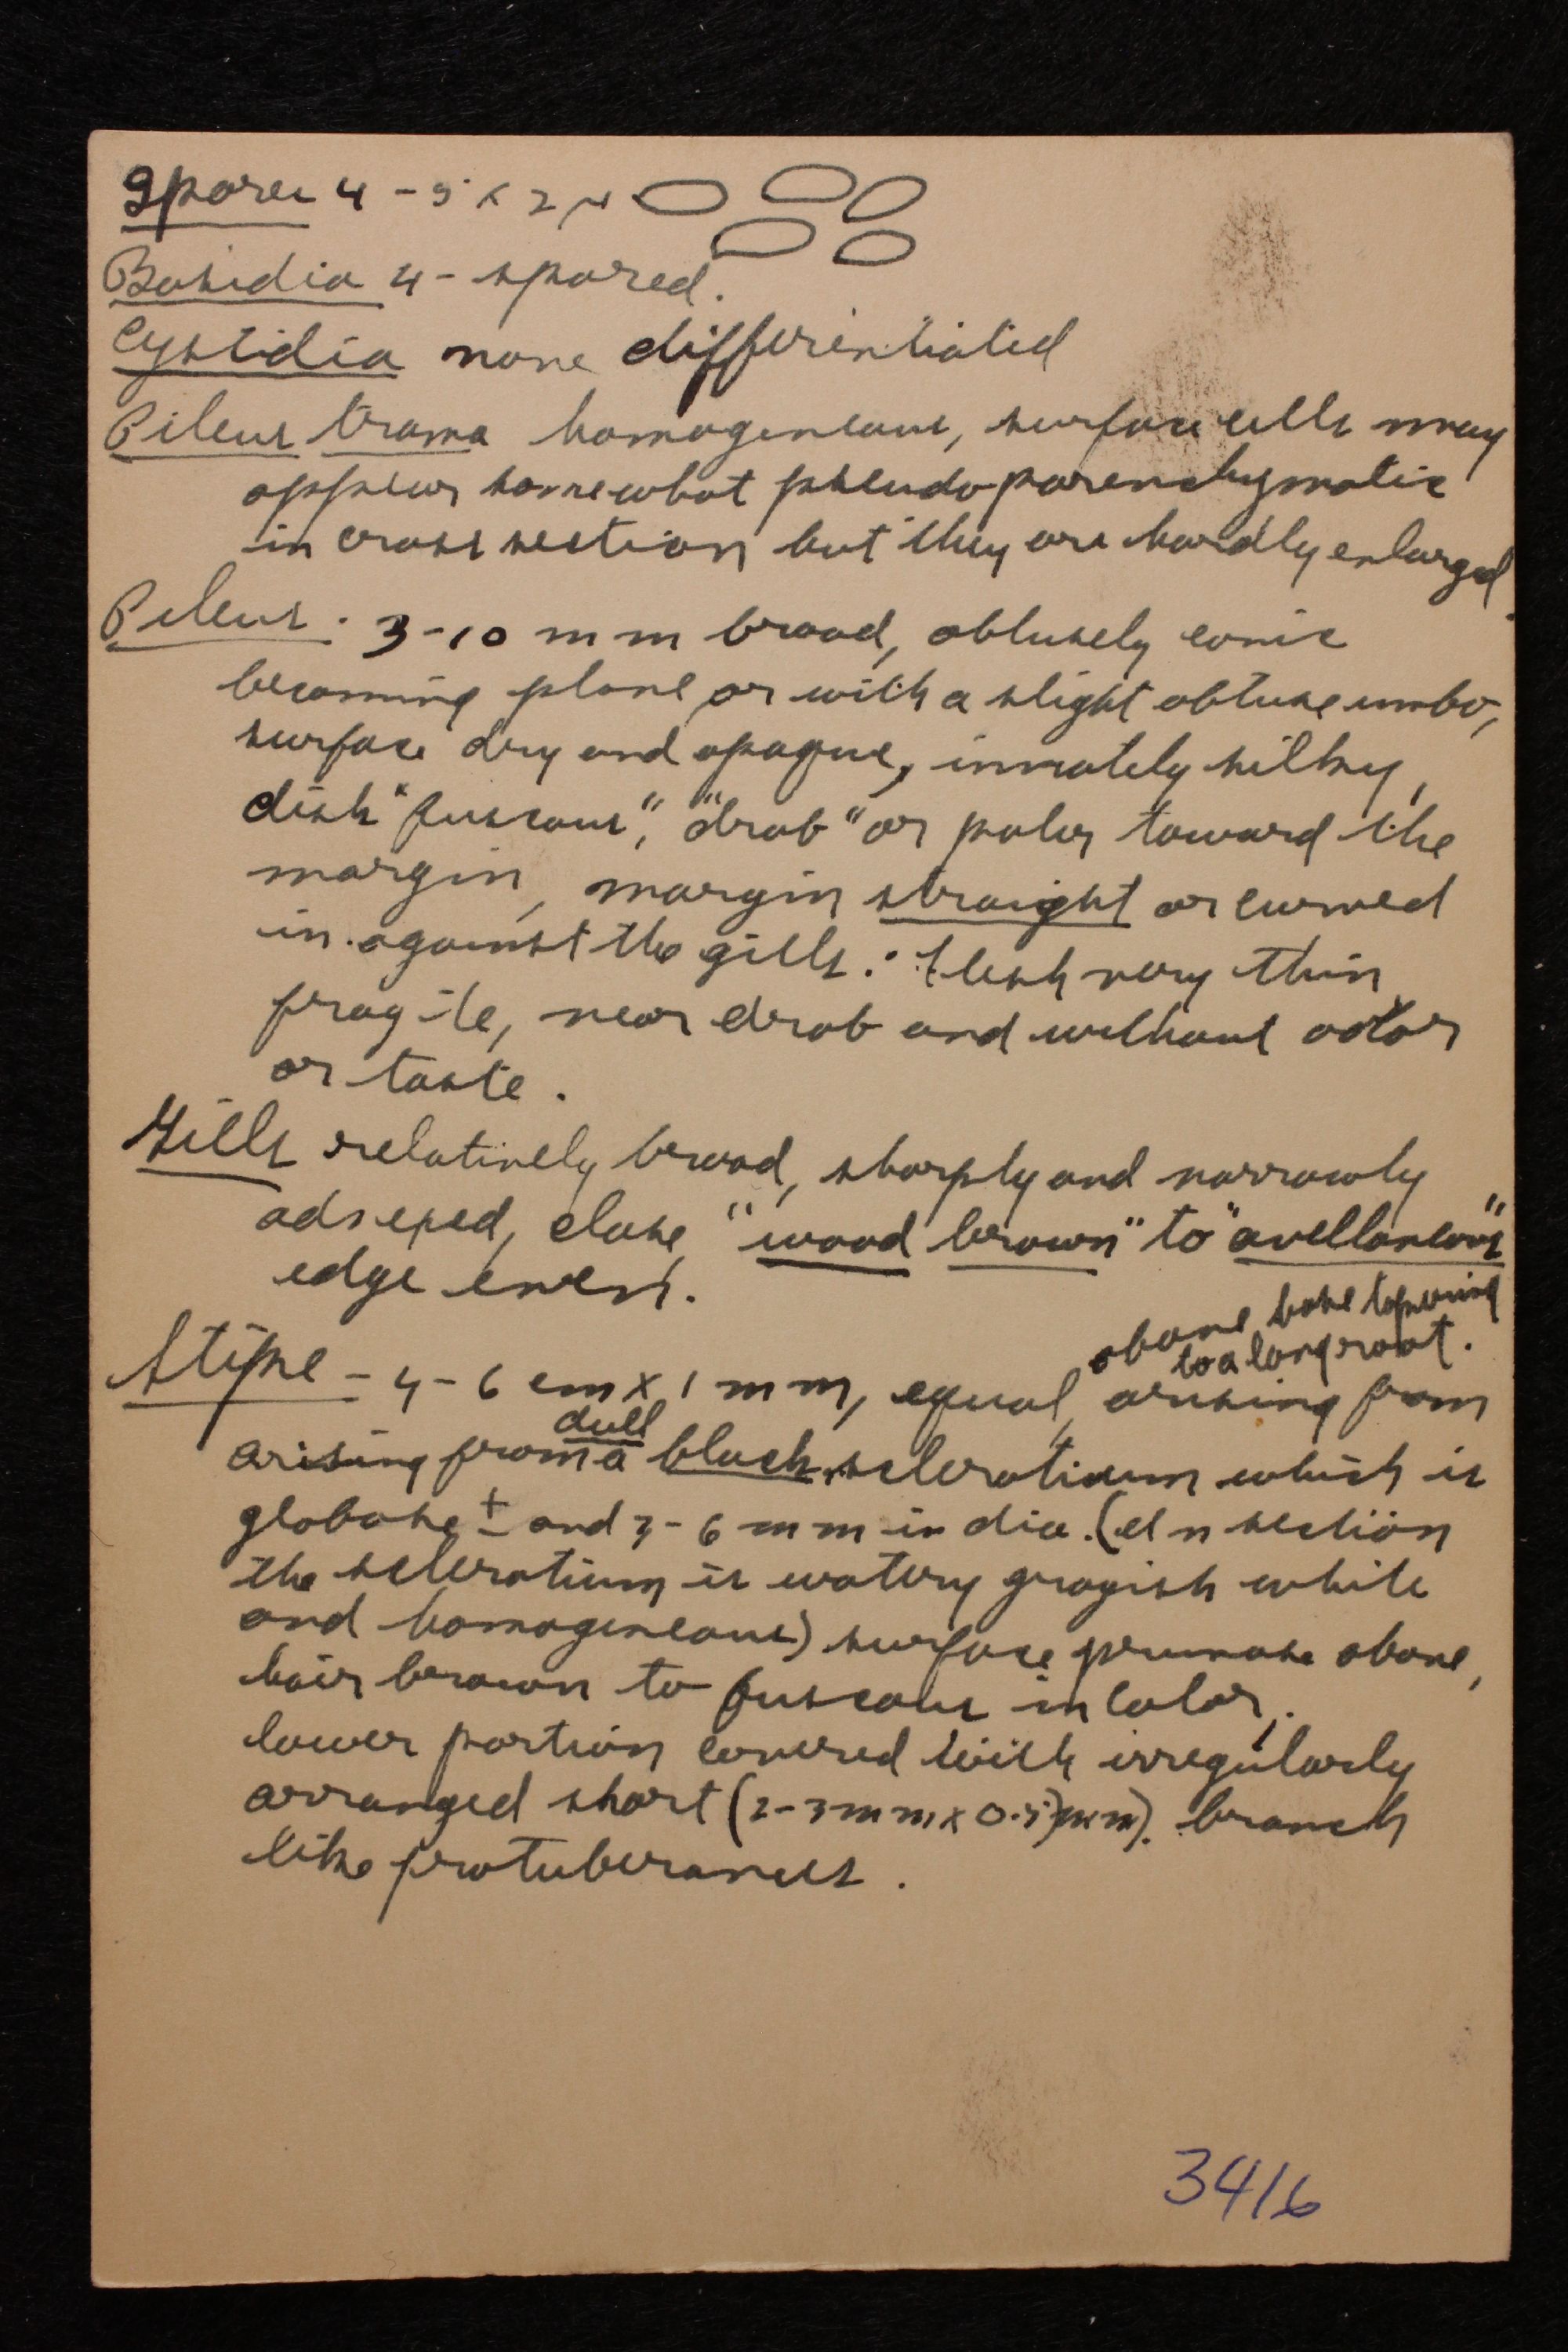 Spores 4-5 x 2 µ
Basidia 4-spored.
Cystidia none differentiated
Pileus trama homogeneous, surface cells may
appear somewhat pseudoparenchymatic
in cross section but they are hardly enlarged.
Pileus. 3-10 mm broad, obtusely conic
becoming plane or with a slight obtuse umbo,
surface dry and opaque, innately silky,
disk "fuscous", "drab" or paler toward the
margin, margin straight or curved
in against the gills. flesh very thin
fragile, near drab and without odor
or taste.
Gills relatively broad, sharply and narrowly
adnexed, close, "wood brown" to "avellaneous"
edge even.
above base tapering
to a long root.
Stipe - 4-6 cm x 1 mm, equal, arising from
arising from a dull black sclerotium which is
globose ± and 3-6 mm in dia. (In section
the sclerotium is watery grayish white
and homogeneous) surface pruinose above,
hair brown to fuscous in color,
lower portion covered with irregularly
arranged short (2-3 mm x 0.5 mm). branch
like protuberances.
3416